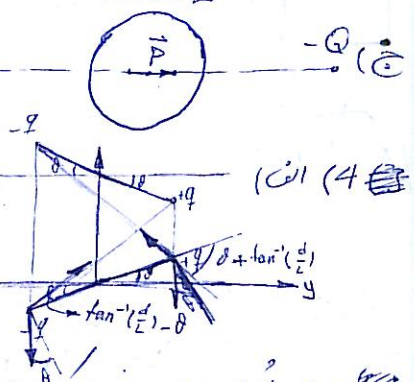 P⃗
-Q
(خ
-q
θ
θ
+q
4) الف)
+q
θ
θ + tan⁻¹(d/L)
y
tan⁻¹(d/L) - θ
-q
θ